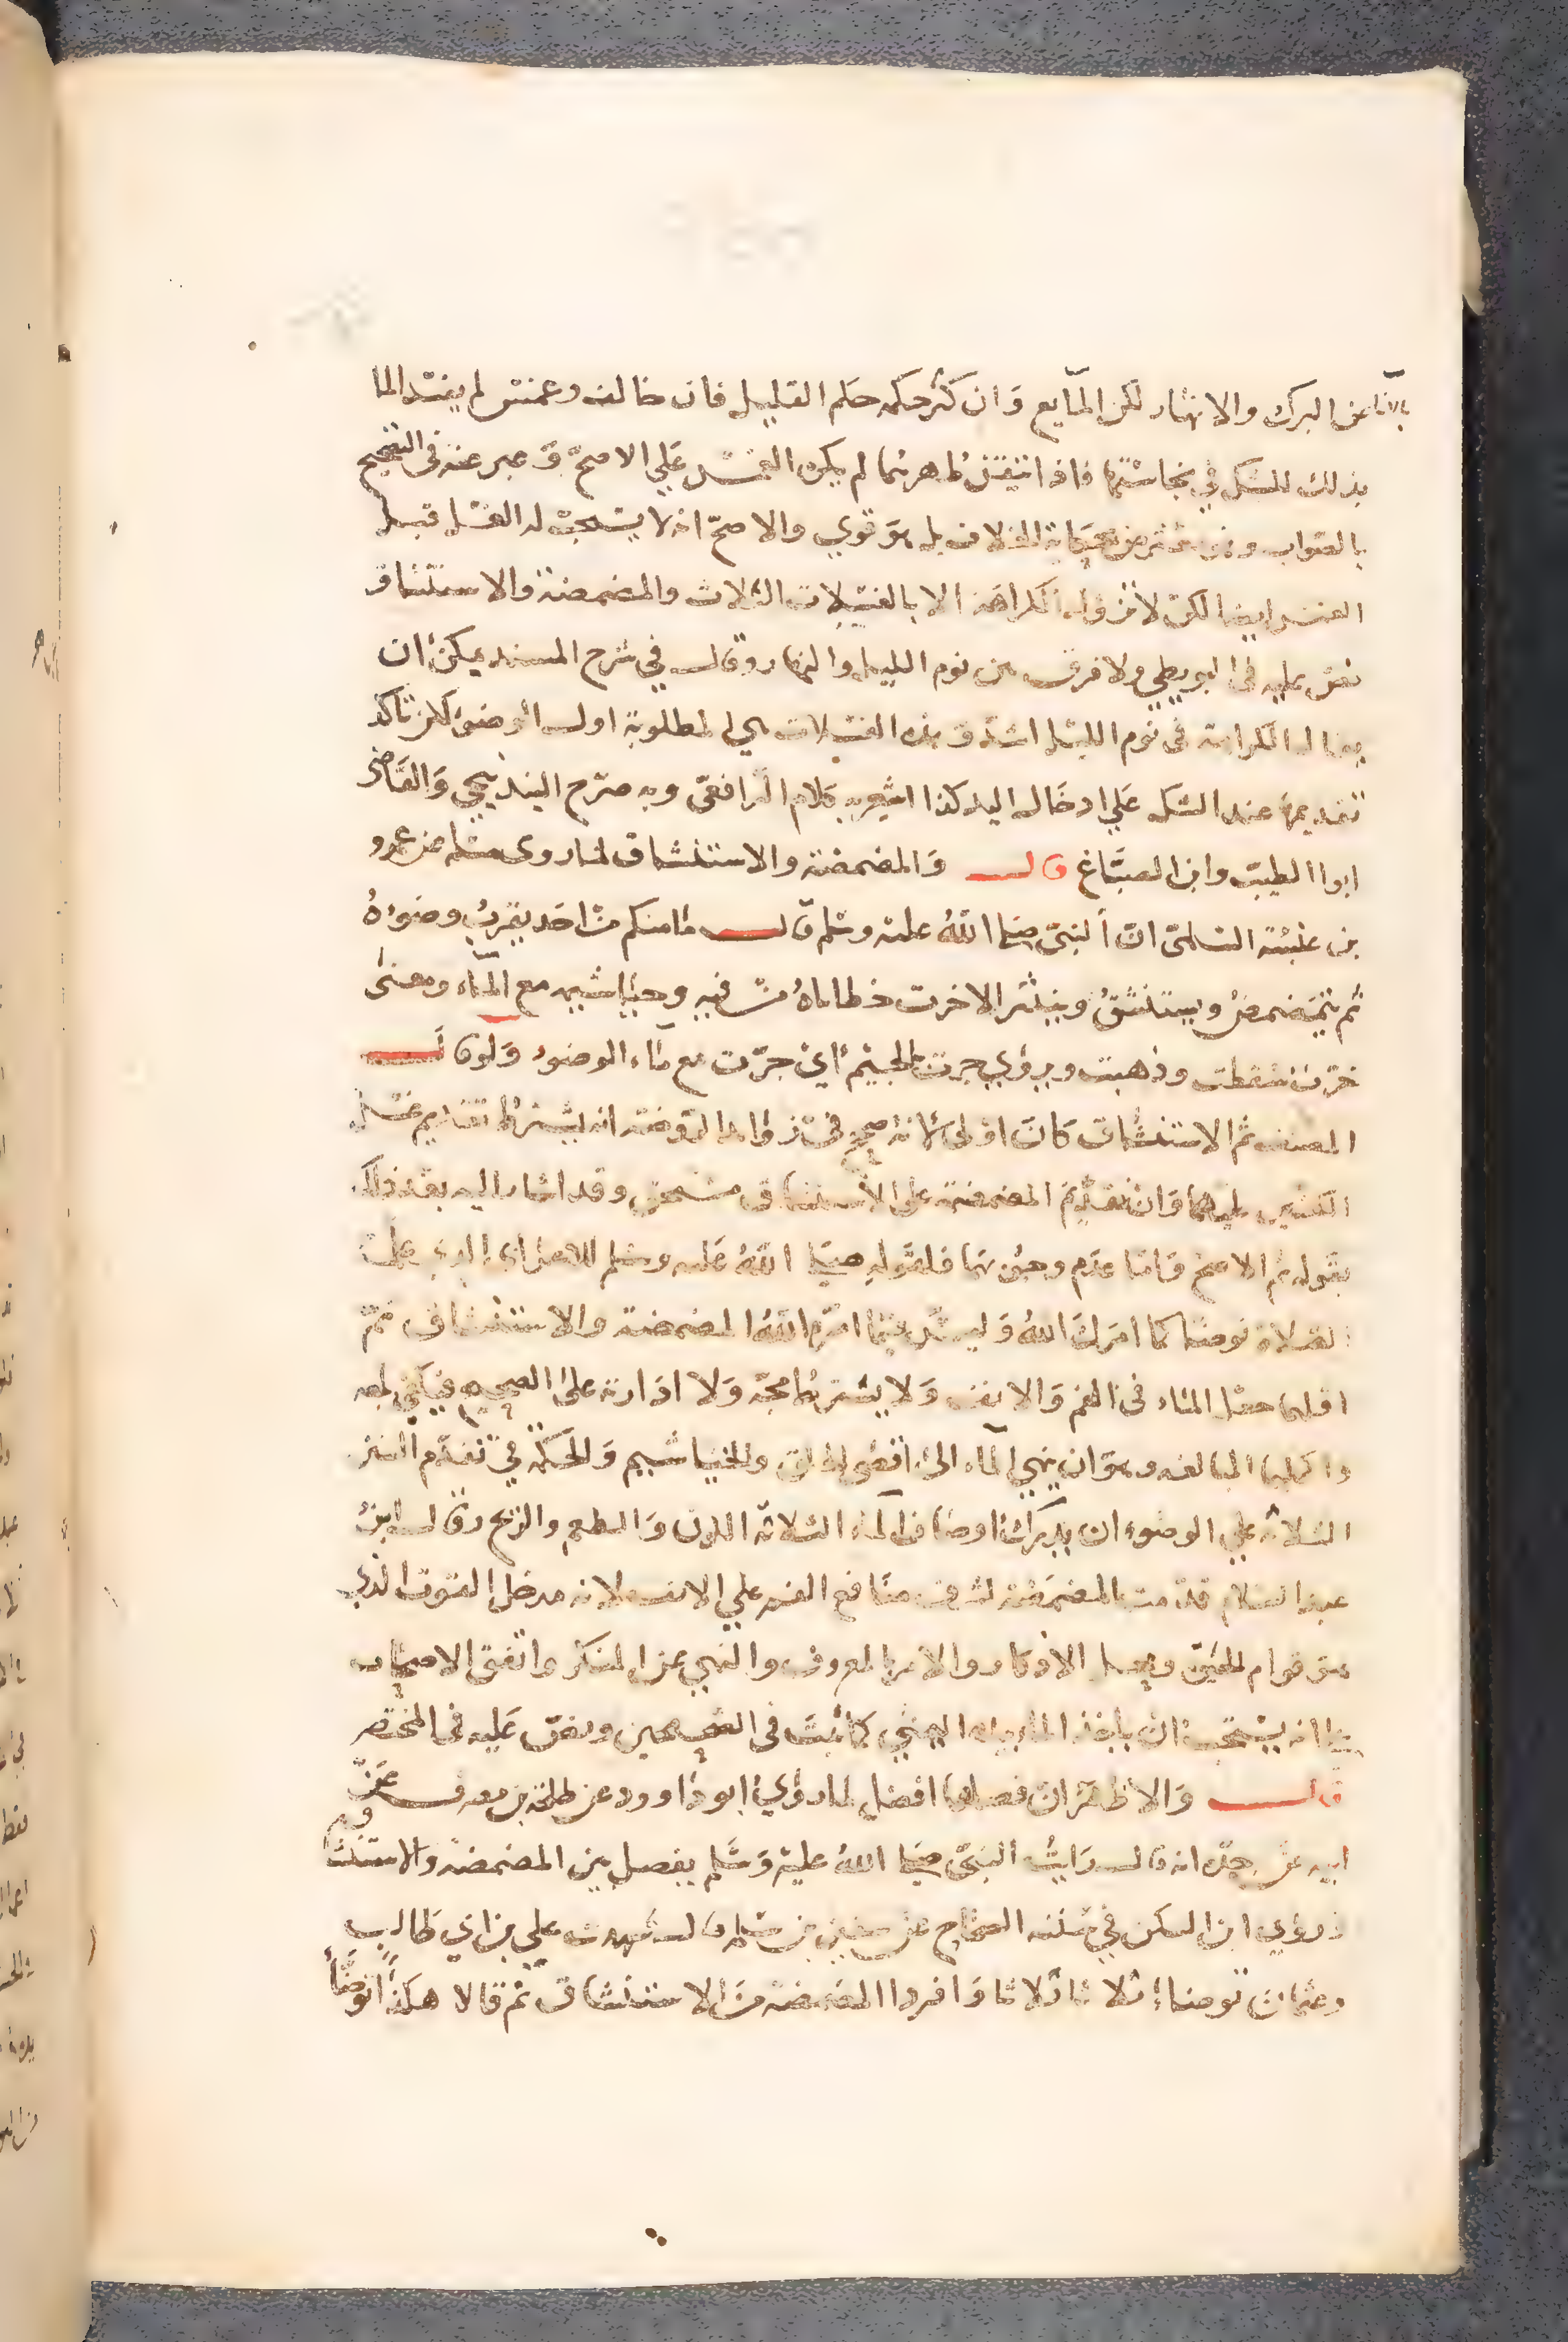 بالاناء عن البرك والانهار لكن المآيع وَان كثر حكمه حكم القليل فان خالف وغمس لم يفسد الما
بذلك للشك في نجاستها فاذا تيقن طهرهما لم يكره الغمس عَلي الاصحّ وَعبر عنه في التنقيح
بالصواب وفى حكاية الخلاف بل هوَ قوي والاصحّ انه لا يستحب له الغسل قبل
الغمس ايضا لكن لا تزول الكراهَة الا بالغسلات الثلاث والمضمضة والاستنشاق
نص عليه في البويطي ولا فرق بين نوم الليل والنهار وقال في شرح المسند يمكن ان
يقال الكراهة في نوم الليل اشدّ وَهذه الغسلات هي المطلوبة اول الوضوء لكن تأكد
تقديمها عند الشك عَلي ادخَال اليد كذا اشعر به كلام الرّافعي وبه صرّح البندنيجي وَالقَاضى
ابوا الطيب وابن الصبَّاغ قال وَالمضمضة والاستنشاق لما روى مسلم عن عمرو
بن عنبسة السلمىّ انّ النبىّ صلى اللّهُ عليه وسلم قال مَا منكم من احَد يقربُ وضوءهُ
ثم يتمَضمضُ ويستنشقُ وينثر الا خرت خطاياهُ من فيه وخياشيمه مع المآء ومعنىٰ
خرّت سقطت وذهبت ويروي جرت بالجيم اي جرَت مع مَاء الوضوء وَلو قال
المصنف ثم الاستنشاق كانَ اوْلى لانه صحح في زوائد الروضة انه يشترط تقديم غسل
الكفين عليهما وَان تقدّيمَ المضمضة على الاستنشاق مستحق وقد اشار اليه بعد ذلك
بقوله ثم الاصح وَامّا عدَم وجوبهما فلقوَلهِ صلى اللّهُ عَليه وسلم للاعرَابي الذي علمه
الصَلاة توضا كما امَرك اللّهُ وَليسَ فيمَا امَر اللّهُ المضمضة والاستنشاق ثمّ
اقلهما جعْل الماء في الفم وَالانف وَلا يشترط مجّه وَلا ادَارته علىٰ الصحيح فيكفي بلعه
واكملهما المبالغه وهوَ ان ينهي المآء الىٰ اقصىٰ الحلق والخياشيم وَالحكمة في تقدّم السنن
الثلاثه علي الوضوء ان يدرك اوصَاف المآء الثلاثه اللون وَالطعم والريح وقال ابن
عبد السَلام قدّمت المضمَضَة لشرف منافع الفم علي الانف لانه مدخل القوت الذي
هوَ قوام الحَيَوة ومحل الاذكار والامر بالمعروف والنهي عن المنكر واتفق الاصحَاب
علىٰ انه يستحَب ان ياخذ الماء بيده اليمني كما ثبتَ في الصحيحين ونص عَليه في المختصر
قال وَالاظهَر انَ فصلهما افضل لما روٰي ابو دَاوود عن طلحة بن مصرف عَن
ابيه عن جدّه انه قال رَايتُ النبىّ صلى اللّهُ عليه وَسَلم يفصل بين المضمضه والاستنشاق
وروٰي ابن السكن في سننه الصحاح عن شقيق بن سلمة قال شهدت علي بن ابي طَالب
وعثمان توضاا ثلاثا ثلاثا وَافردا المضمضة منَ الاستنشاق ثم قالا هكذا توضأ